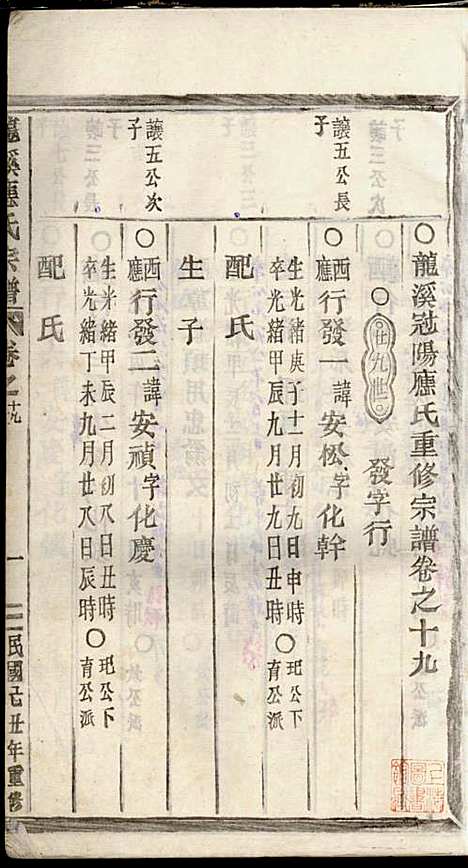 ○龍溪冠陽應氏重修宗譜卷之十九
○廿九世○ 發字行
讓五公長
子
○西應行發一諱安松字化幹
生光緒庚子十一月初九日申時○玘公下
卒光緒甲辰九月廿九日丑時 育公派
配氏
生子
讓五公次
子
○西應行發二諱安禎字化慶
生光緒甲辰二月初八日丑時○玘公下
卒光緒丁未九月廿八日辰時 育公派
配氏
龍溪應氏宗譜 卷之十九 一 民國己丑年重修